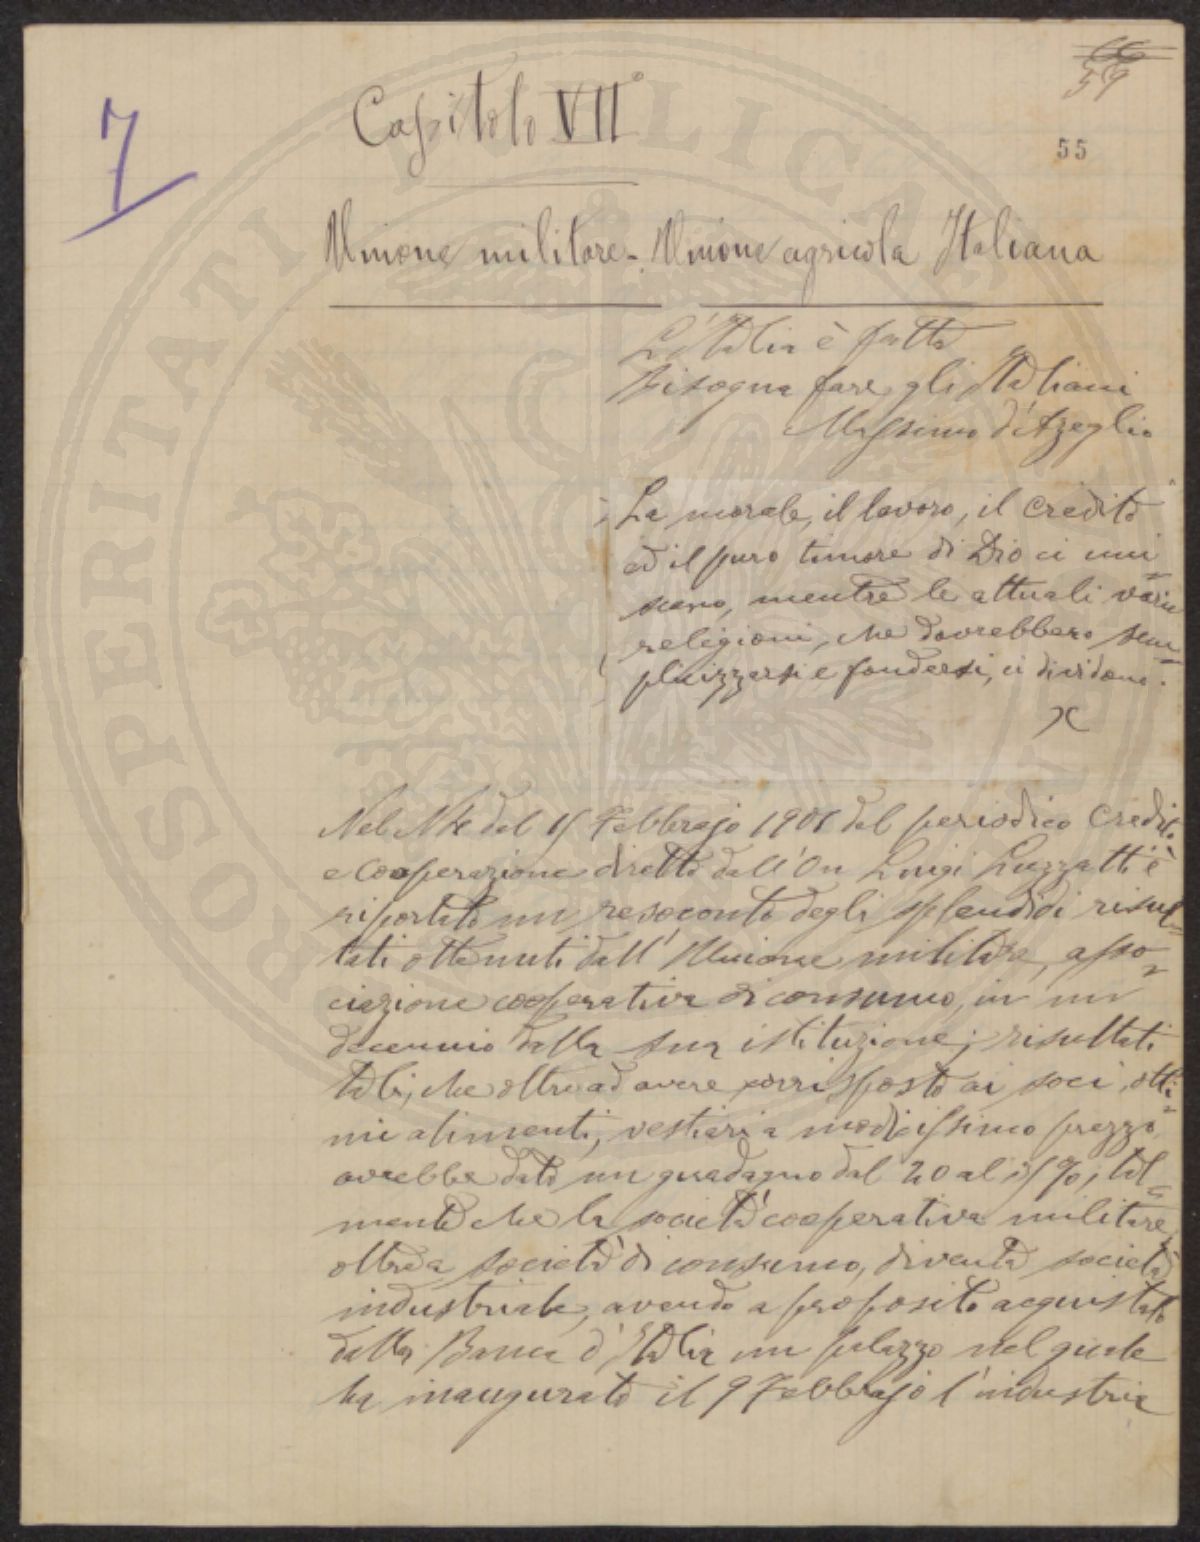 66
59
55
7
Capitolo VII°
Unione militare - Unione agricola Italiana
L'Italia è fatta
Bisogna fare gli Italiani
Massimo d'Azeglio
La morale, il lavoro, il credito
ed il puro timore di Dio ci uni-
scono, mentre le attuali varie
religioni, che dovrebbero sem-
plicizzarsi e fondersi, ci dividono.
X
Nel del 15 Febbrajo 1901 del periodico Credito
e Cooperazione diretto dall'On Luigi Luzzatti è
riportato un resoconto degli splendidi risul-
tati ottenuti dall'Unione militare, asso-
ciazione cooperativa di consumo, in un
decennio dalla sua istituzione; risultati
tali, che oltre ad avere corrisposto ai soci otti-
mi alimenti, vestiari a modicissimo prezzo,
avrebbe dato un guadagno dal 20 al %, tal-
mente che la società cooperativa militare,
oltre a società di consumo, diventa società
industriale, avendo a proposito acquistato
dalla Banca d'Italia un palazzo nel quale
ha inaugurato il 9 Febbrajo l'industria
PROSPERITATI PUBLICAE